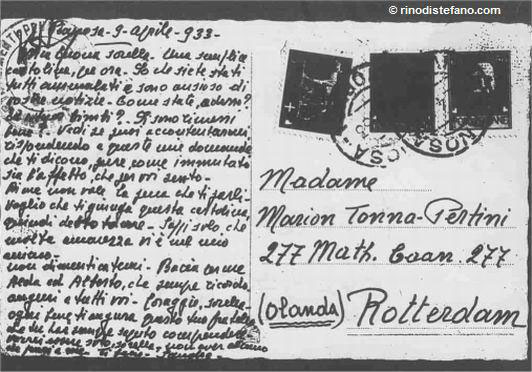 © rinodistefano.com
Pianosa - 9 - aprile - 933 -
mia buona sorella - Una semplice
cartolina, per ora - So che siete stati
tutti ammalati e sono ansioso di
vostre notizie - Come state, adesso?
bimbi? - Si sono rimessi
bene? - Vedi se puoi accontentarmi,
rispondendo a queste mie domande
che ti dicono pure come immutato
sia l'affetto, che per voi sento -
Di me non vale la pena che ti parli -
Voglio che ti giunga questa cartolina,
quindi debbo tacere - Sappi solo, che
molta amarezza vi è nel mio
animo -
non dimenticatemi - Bacia per me
ed Alberto, che sempre ricordo,
auguri a tutti voi - Coraggio, sorella -
ogni bene ti augura questo tuo fratello
che tu hai sempre saputo comprendere -
sorella, non aver
Madame
Marion Tonna-Pertini
277 Math. Laan. 277
(Olanda) Rotterdam